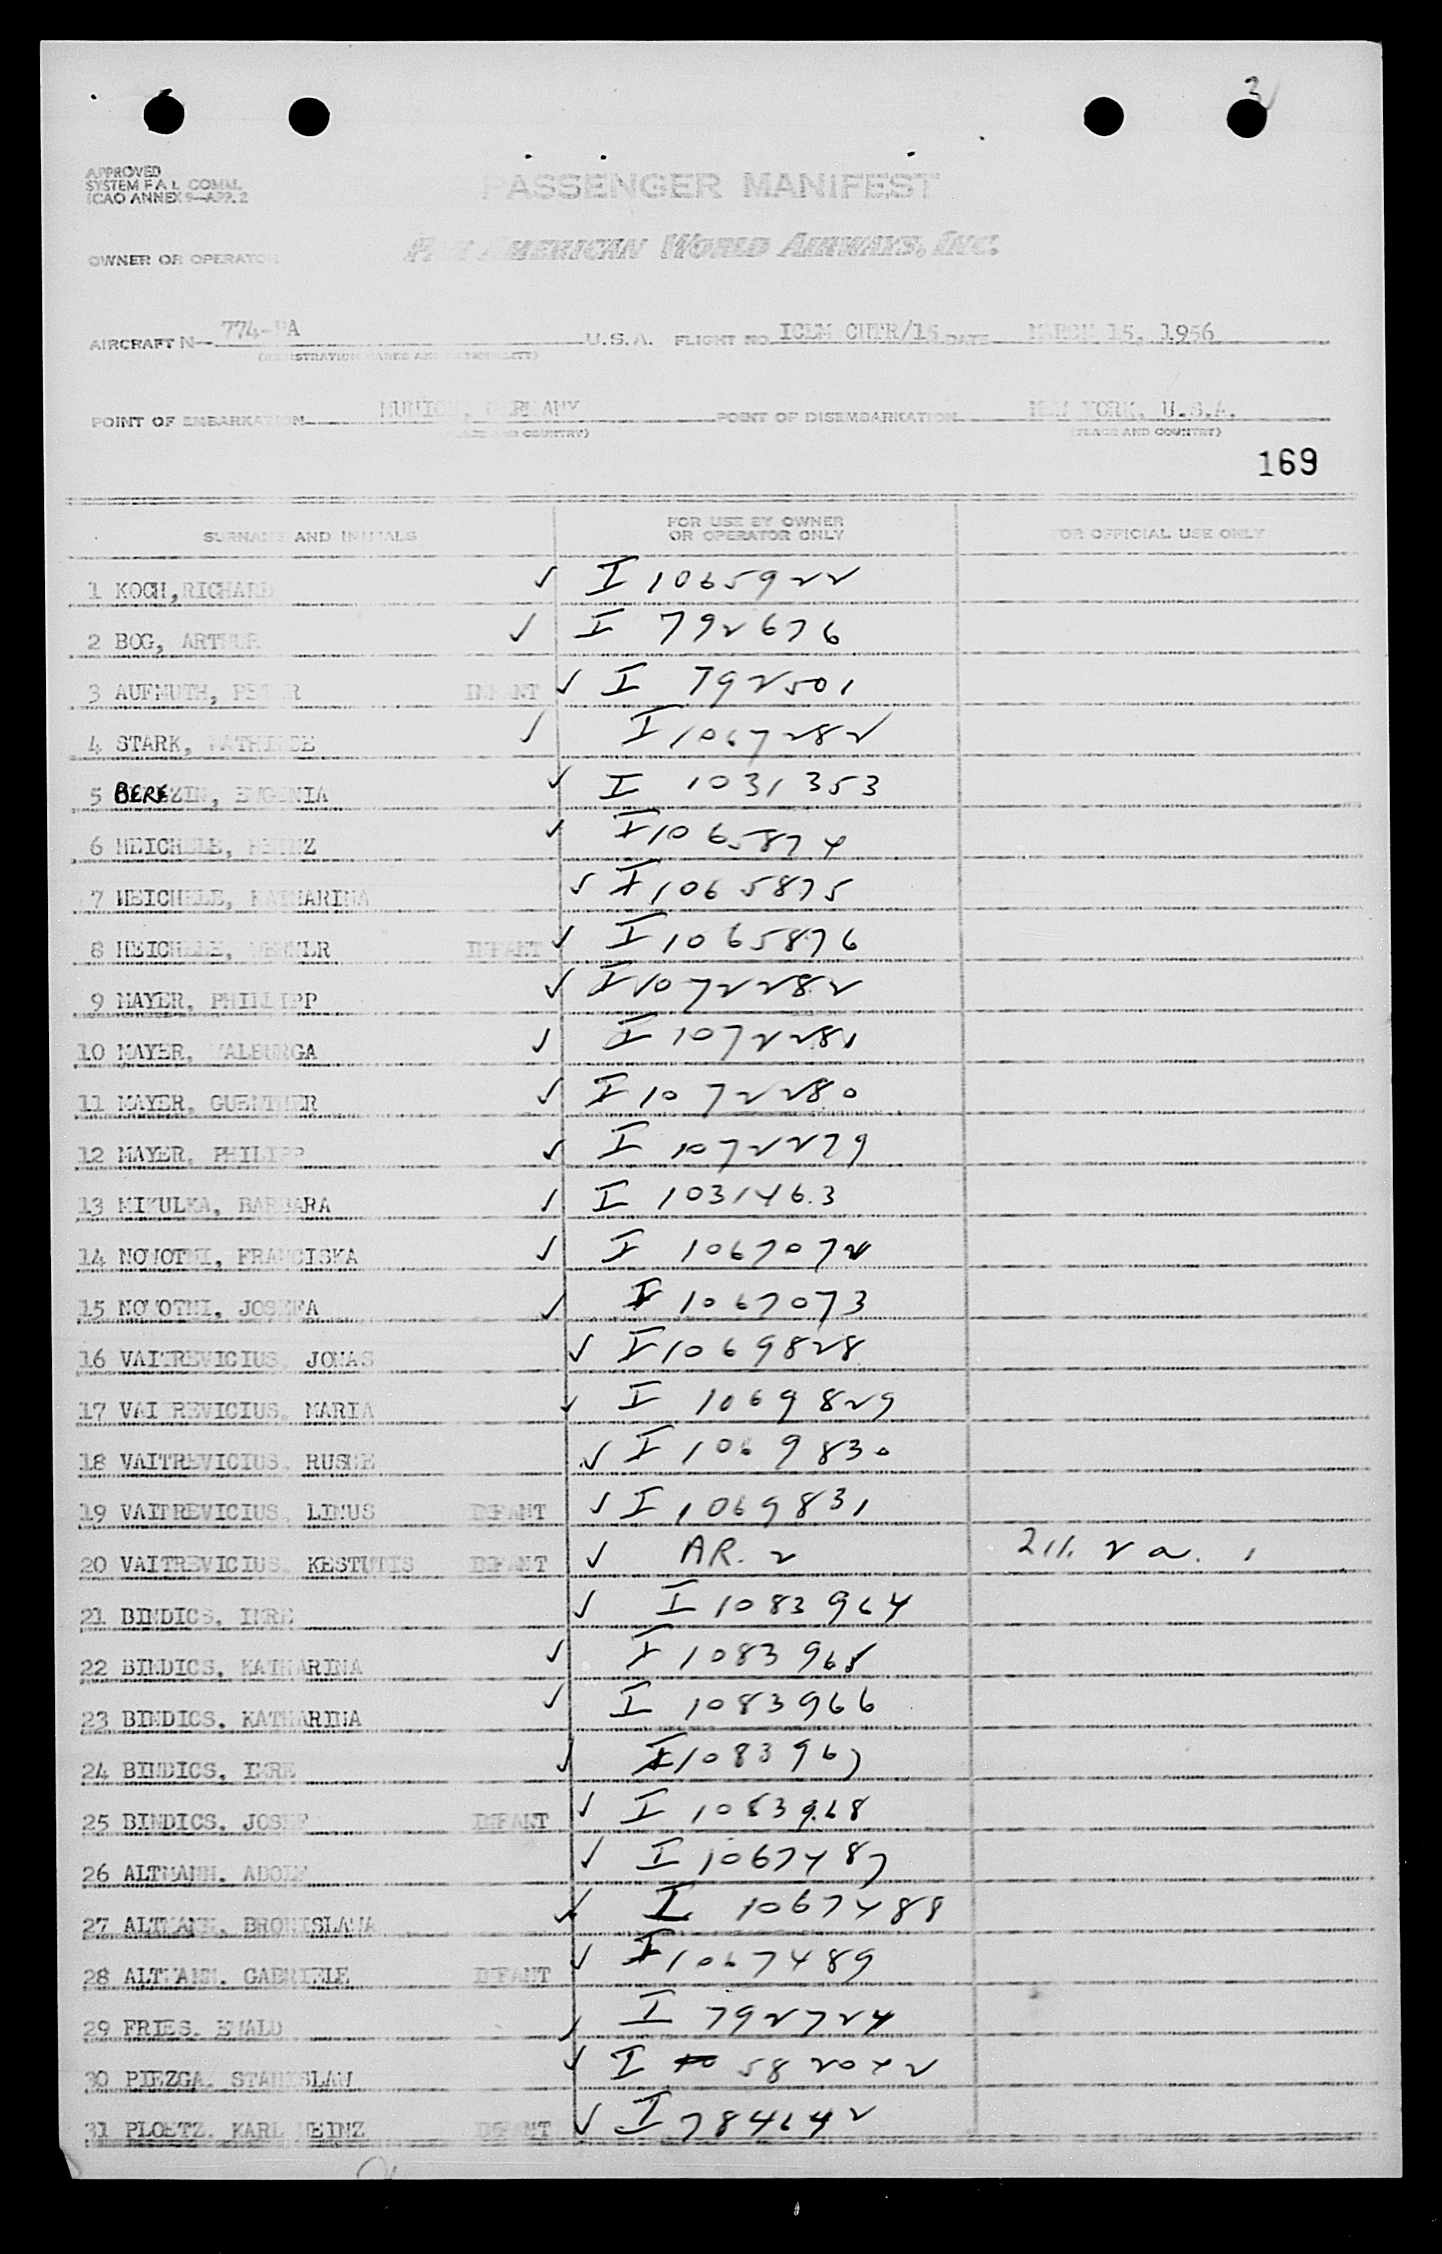 3
APPROVED
SYSTEM F A L COMM.
ICAO ANNEX 9—APP. 2
PASSENGER MANIFEST
OWNER OR OPERATOR
PAN AMERICAN WORLD AIRWAYS, INC.
AIRCRAFT N— 774-PA U.S.A. FLIGHT NO. ICEM CHTR/15 DATE MARCH 15, 1956
(REGISTRATION MARKS AND NATIONALITY)
POINT OF EMBARKATION MUNICH, GERMANY POINT OF DISEMBARKATION NEW YORK, U.S.A.
(PLACE AND COUNTRY) (PLACE AND COUNTRY)
169
SURNAME AND INITIALS FOR USE BY OWNER OR OPERATOR ONLY FOR OFFICIAL USE ONLY
1 KOCH, RICHARD ✓ I 1065922
2 BOG, ARTHUR ✓ I 792676
3 AUFMUTH, PETER INFANT ✓ I 792501
4 STARK, MATHILDE ✓ I 1067282
5 BEREZIN, EUGENIA ✓ I 1031353
6 HEICHELE, HEINZ ✓ I 1065874
7 HEICHELE, KATHARINA ✓ I 1065875
8 HEICHELE, WERNER INFANT ✓ I 1065876
9 MAYER, PHILLIPP ✓ I 1072282
10 MAYER, WALBURGA ✓ I 1072281
11 MAYER, GUENTHER ✓ I 1072280
12 MAYER, PHILIPP ✓ I 1072279
13 MIKULKA, BARBARA ✓ I 1031463
14 NOVOTNI, FRANCISKA ✓ I 1067072
15 NOVOTNI, JOSEFA ✓ I 1067073
16 VAITREVICIUS, JONAS ✓ I 1069828
17 VAITREVICIUS, MARIA ✓ I 1069829
18 VAITREVICIUS, RUSNE ✓ I 1069830
19 VAITREVICIUS, LINUS INFANT ✓ I 1069831
20 VAITREVICIUS, KESTUTIS INFANT ✓ AR. 2 211. 2 a. 1
21 BINDICS, IMRE ✓ I 1083964
22 BINDICS, KATHARINA ✓ I 1083965
23 BINDICS, KATHARINA ✓ I 1083966
24 BINDICS, IMRE ✓ I 1083967
25 BINDICS, JOSEF INFANT ✓ I 1083968
26 ALTMANN, ADOLF ✓ I 1067487
27 ALTMANN, BRONISLAWA ✓ I 1067488
28 ALTMANN, GABRIELE INFANT ✓ I 1067489
29 FRIES, EWALD ✓ I 792724
30 PIEZGA, STANISLAW ✓ I 582042
31 PLOETZ, KARL HEINZ INFANT ✓ I 784642